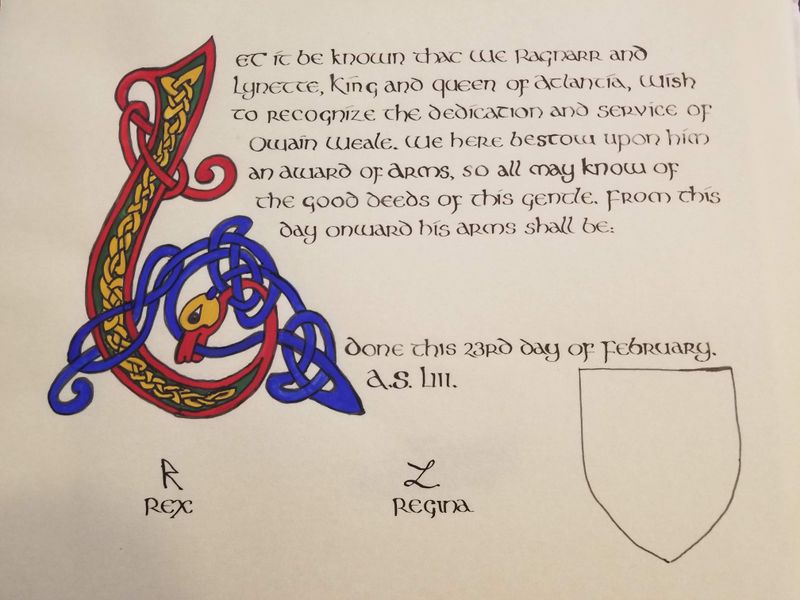 Let it be known that we Ragnarr and
Lynette, King and queen of Atlantia, wish
to recognize the dedication and service of
Owain Weale. We here bestow upon him
an award of Arms, so all may know of
the good deeds of this gentle. From this
day onward his arms shall be:
Done this 23rd day of February.
A.S. LIII.
R L
Rex Regina